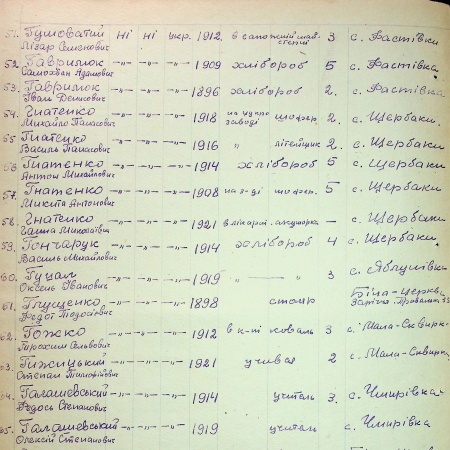 51. Гумоватий ні ні укр. 1912. в сапожній май- 3 с. Фастівка
Лізар Семенович стерні
52. Гаврилюк –"– –"– –"– 1909 хлібороб 5 с. Фастівка.
Самохван Адамович
53. Гаврилюк –"– –"– –"– 1896 хлібороб 2. с. Фастівка.
Іван Денисович
54. Гнатенко –"– –"– –"– 1918 на цукро шофер. 2. с. Щербаки.
Михайло Панасович заводі
55 Гнатенко –"– –"– –"– 1916 " літейщик 2. с. Щербаки.
Василь Панасович
56 Гнатенко –"– –"– –"– 1914 хлібороб 5 с. Щербаки
Антон Михайлович
57. Гнатенко –"– –"– –"– 1908 на з-ді шофер. 5 с. Щербаки
Микита Антонович
58. Гнатенко –"– –"– –"– 1921 в лікарні акушерка – с. Щербаки
Ганна Миколаївна
59. Гончарук –"– –"– –"– 1914 хлібороб 4 с. Щербаки.
Василь Михайлович
60. Гуцал –"– –"– –"– 1919 " — " 3 с. Яблунівка
Оксень Іванович
61. Глущенко –"– –"– –"– 1898 столяр Біла-Церква
Федот Тодосієвич Заріччя
62. Гожко –"– –"– –"– 1912 в к-пі коваль 3 с. Мала-Сквирка.
Трохим Сельвович
63. Гижицький –"– –"– –"– 1921 учився 2 с. Мала-Сквирка.
Степан Тимофійович
64. Галашевський –"– –"– –"– 1914 учитель 3. с. Чмирівка
Федось Степанович
65. Галашевський –"– –"– –"– 1919 учитель с. Чмирівка
Олексій Степанович